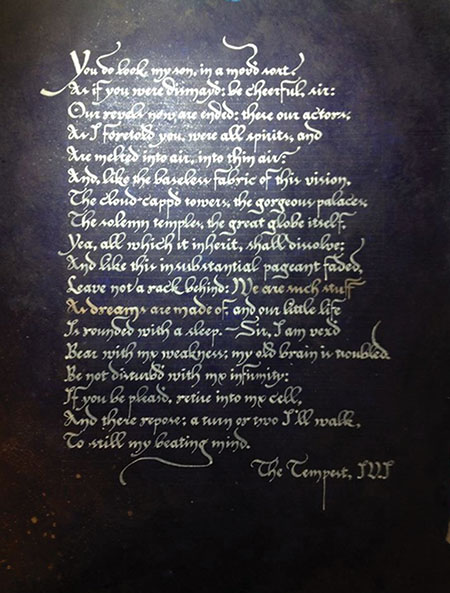 You do look, my son, in a mov'd sort,
As if you were dismay'd: be cheerful, sir:
Our revels now are ended: these our actors,
As I foretold you, were all spirits, and
Are melted into air, into thin air:
And, like the baseless fabric of this vision,
The cloud-capp'd towers, the gorgeous palaces,
The solemn temples, the great globe itself,
Yea, all which it inherit, shall dissolve;
And like this insubstantial pageant faded,
Leave not a rack behind: We are such stuff
As dreams are made of, and our little life
Is rounded with a sleep. —Sir, I am vex'd
Bear with my weakness; my old brain is troubled.
Be not disturb'd with my infirmity:
If you be pleas'd, retire into my cell,
And there repose; a turn or two I'll walk,
To still my beating mind.
The Tempest,